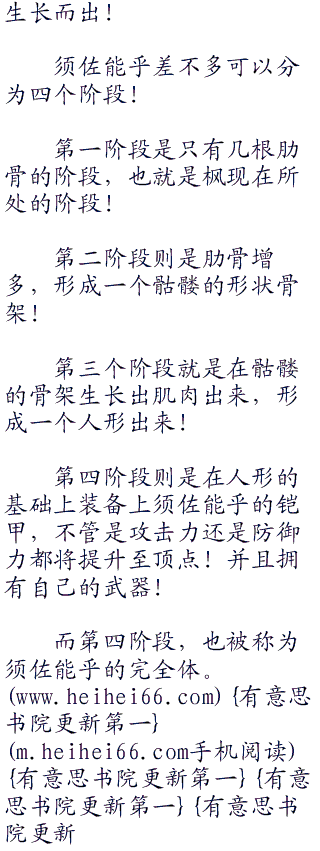 生长而出！
须佐能乎差不多可以分
为四个阶段！
第一阶段是只有几根肋
骨的阶段，也就是枫现在所
处的阶段！
第二阶段则是肋骨增
多，形成一个骷髅的形状骨
架！
第三个阶段就是在骷髅
的骨架生长出肌肉出来，形
成一个人形出来！
第四阶段则是在人形的
基础上装备上须佐能乎的铠
甲，不管是攻击力还是防御
力都将提升至顶点！并且拥
有自己的武器！
而第四阶段，也被称为
须佐能乎的完全体。
(www.heihei66.com) {有意思
书院更新第一}
(m.heihei66.com手机阅读)
{有意思书院更新第一} {有意
思书院更新第一} {有意思书
院更新